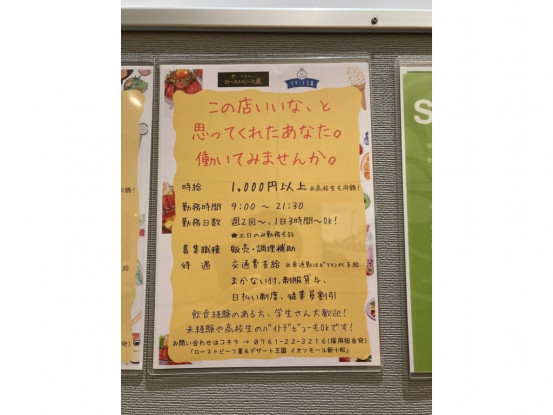 ローストビーフ星
デザート王国
この店いいな、と
思ってくれたあなた。
働いてみませんか。
時給 1,000円以上 ※高校生も同額!
勤務時間 9:00 ～ 21:30
勤務日数 週2回～、1日3時間～Ok!
★土日のみ勤務もOK
募集職種 販売・調理補助
待遇 交通費支給 ※車通勤はガソリン代支給
まかない付、制服貸与、
日払い制度、従業員割引
飲食経験のある方、学生さん大歓迎!
未経験や高校生のバイトデビューもOkです!
お問い合わせはコチラ → 0761-22-3216(採用担当宛)
「ローストビーフ星&デザート王国 イオンモール新小松」
S